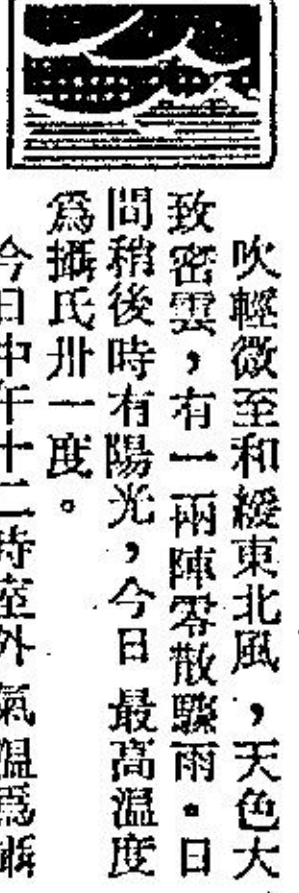 吹輕微至和緩東北風，天色大
致密雲，有一兩陣零散驟雨。日
間稍後時有陽光，今日最高溫度
爲攝氏卅一度。
今日中午十二時室外氣溫爲攝